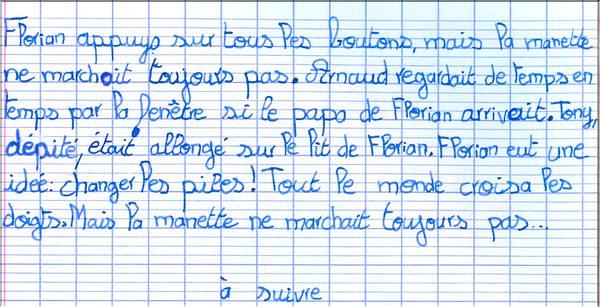 Florian appuya sur tous les boutons, mais la manette
ne marchait toujours pas. Arnaud regardait de temps en
temps par la fenêtre si le papa de Florian arrivait. Tony,
dépité, était allongé sur le lit de Florian. Florian eut une
idée: changer les piles! Tout le monde croisa les
doigts. Mais la manette ne marchait toujours pas...
à suivre